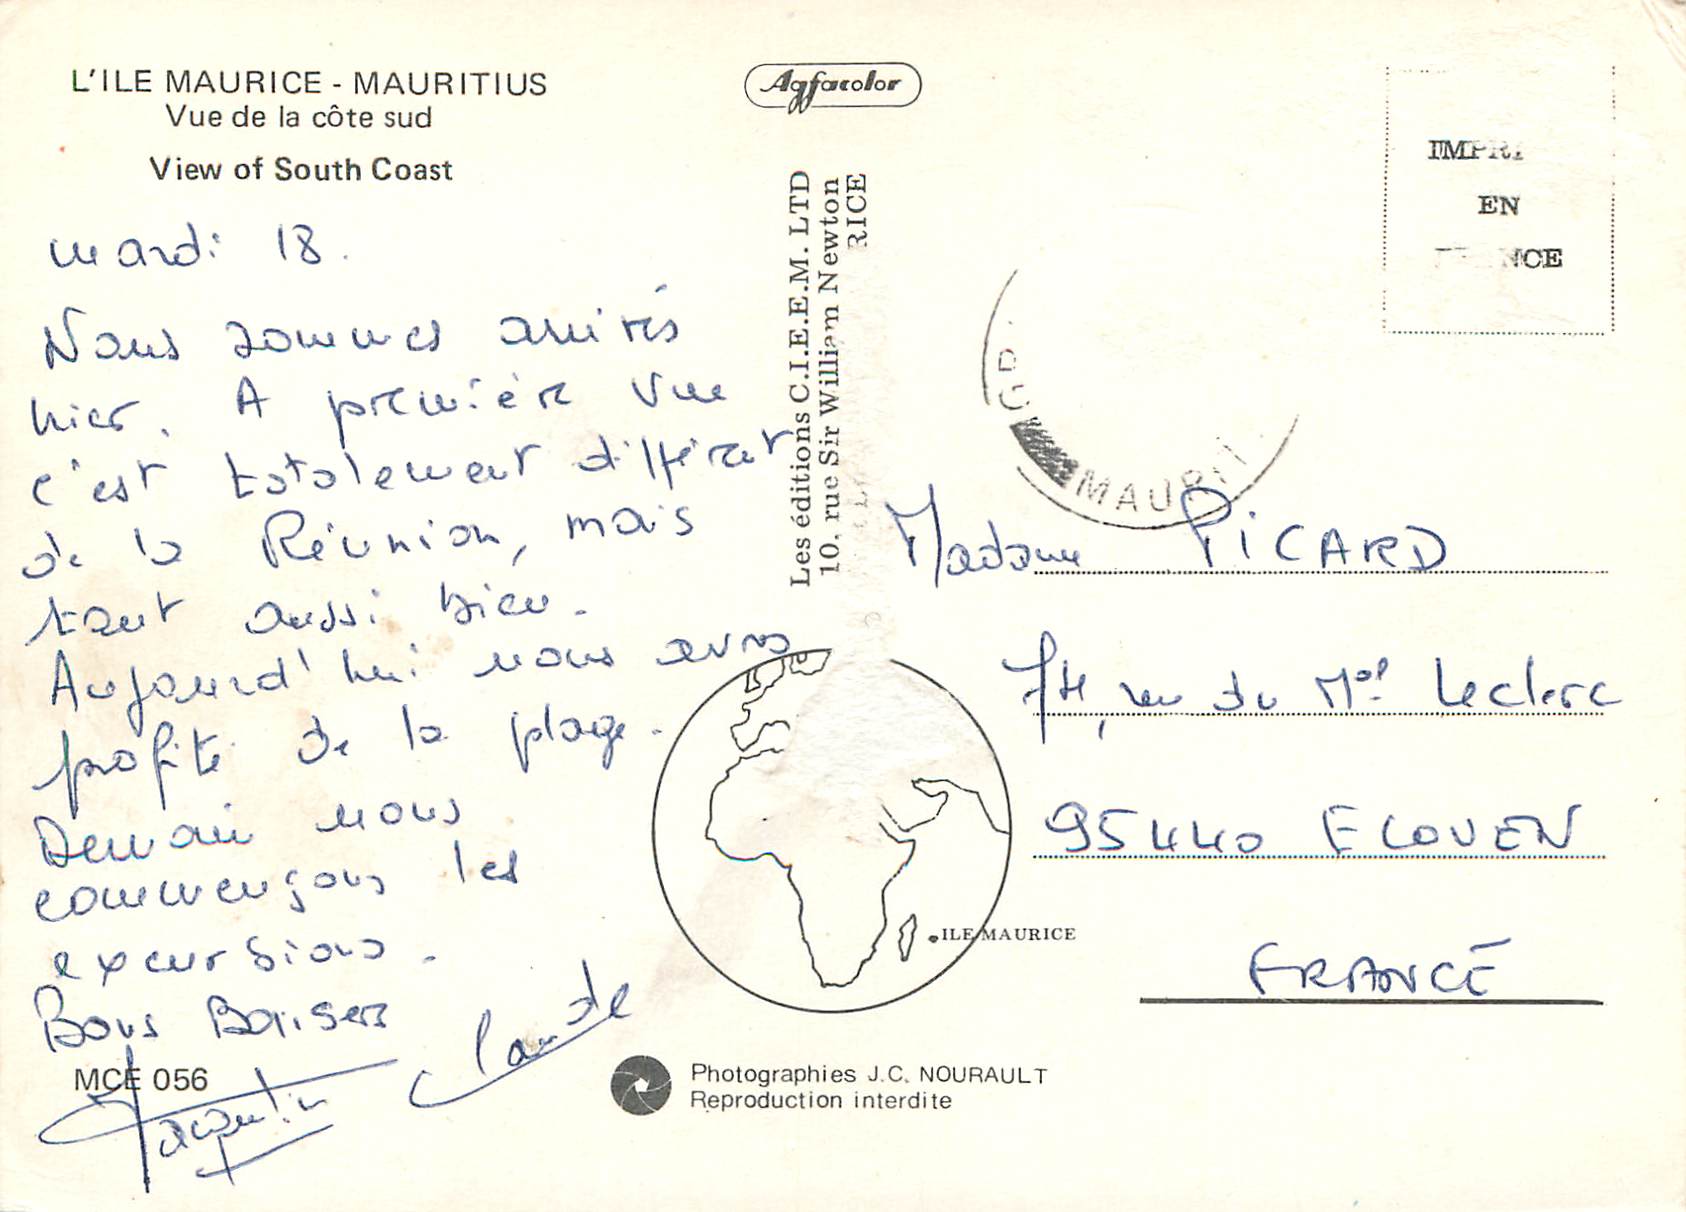 L'ILE MAURICE - MAURITIUS
Vue de la côte sud
View of South Coast
mardi 18.
Nous sommes arrivés
hier. A première vue
c'est totalement différent
de la Réunion, mais
tout aussi bien.
Aujourd'hui nous avons
profité de la plage.
Demain nous
commençons les
excursions.
Bons Baisers
Claude
MCE 056
Agfacolor
Les éditions C.I.E.E.M. LTD
10, rue Sir William Newton
RICE
EN
NCE
MAURIT
Madame PICARD
rue du Mal Leclerc
95440 ECOUEN
FRANCE
ILE MAURICE
Photographies J.C. NOURAULT
Reproduction interdite